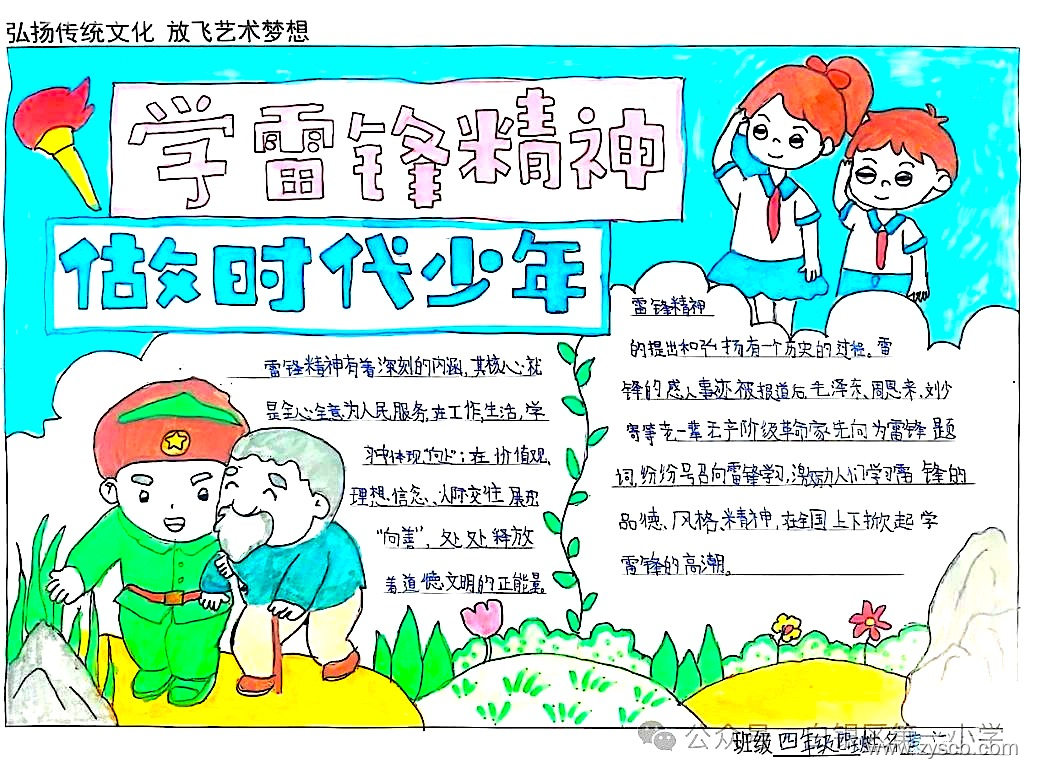 弘扬传统文化 放飞艺术梦想
学雷锋精神
做时代少年
雷锋精神有着深刻的内涵,其核心就
是全心全意为人民服务,在工作,生活,学
习中体现"向上";在价值观、
理想信念、人际交往展现
"向善",处处释放
着道德文明的正能量。
雷锋精神
的提出和弘扬有一个历史的过程。雷
锋的感人事迹被报道后,毛泽东、周恩来、刘少
奇等老一辈无产阶级革命家先向为雷锋题
词,纷纷号召向雷锋学习,激励人们学习雷锋的
品德、风格、精神,在全国上下掀起学
雷锋的高潮。
班级 四年级四班 姓名
公众号 白银区第一小学
www.zyscb.com